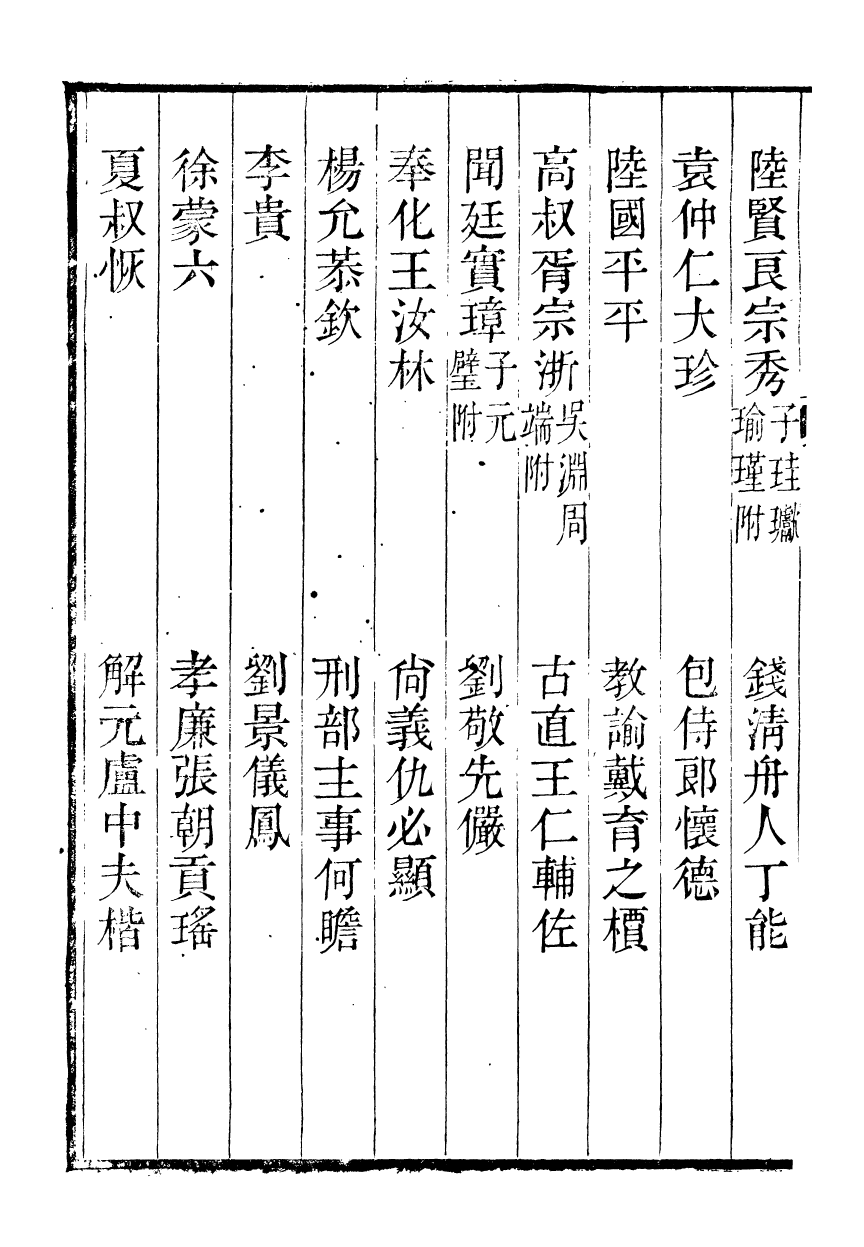 陸賢良宗秀子珪瓛瑜瑾附　錢清舟人丁能
袁仲仁大珍　包侍郎懷德
陸國平平　教諭戴育之櫝
高叔胥宗浙吳淵周端附　古直王仁輔佐
聞廷實璋子元璧附　劉敬先儼
奉化王汝林　尙義仇必顯
楊允恭欽　刑部主事何瞻
李貴　劉景儀鳳
徐蒙六　孝廉張朝貢瑤
夏叔恢　解元盧中夫楷